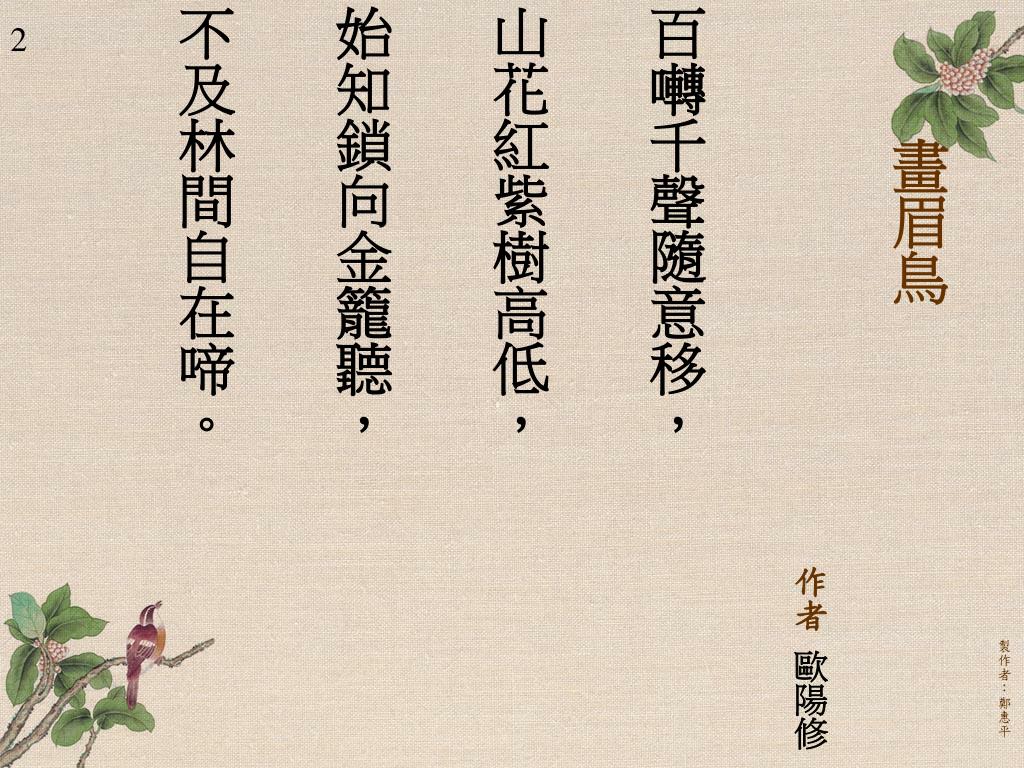 畫眉鳥
作者 歐陽修
百囀千聲隨意移，
山花紅紫樹高低，
始知鎖向金籠聽，
不及林間自在啼。
製作者：鄭惠平
2